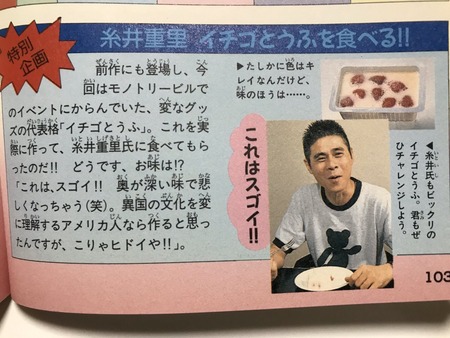 特別
企画
糸井重里 イチゴとうふを食べる!!
前作にも登場し、今
回はモノトリービルで
のイベントにからんでいた、変なグッ
ズの代表格「イチゴとうふ」。これを実
際に作って、糸井重里氏に食べてもら
ったのだ!! どうです、お味は!?
「これは、スゴイ!! 奥が深い味で悲
しくなっちゃう(笑)。異国の文化を変
に理解するアメリカ人なら作ると思っ
たんですが、こりゃヒドイや!!」。
▶たしかに色はキ
レイなんだけど、
味のほうは……。
これはスゴイ!!
◀糸井氏もビックリの
イチゴとうふ。君もぜ
ひチャレンジしよう。
103